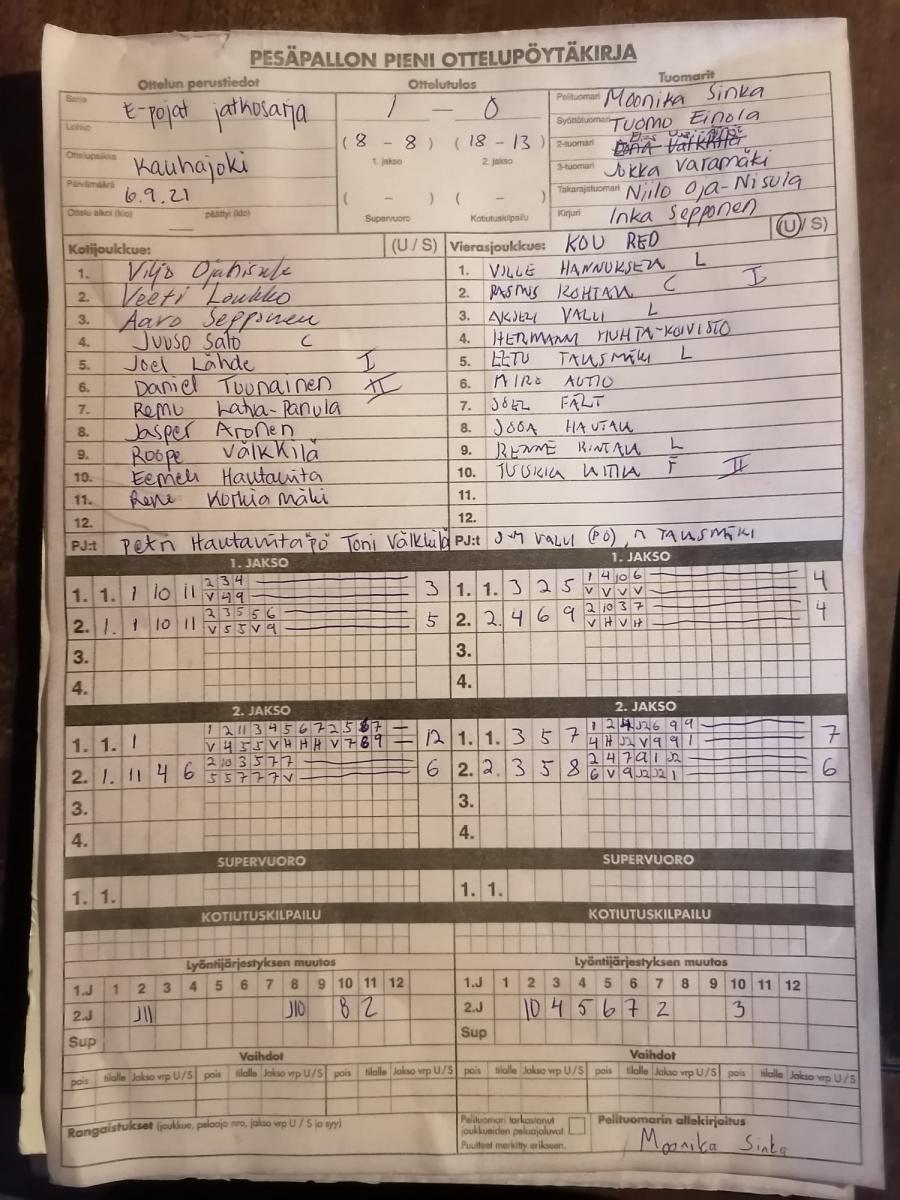 PESÄPALLON PIENI OTTELUPÖYTÄKIRJA
Ottelun perustiedot
Ottelutulos
Tuomarit
Sarja E-pojat jatkosarja
Lohko
Ottelupaikka Kauhajoki
Päivämäärä 6.9.21
Ottelu alkoi (klo) päättyi (klo)
1 - 0
(8 - 8) (18 - 13)
1. jakso 2. jakso
( - ) ( - )
Supervuoro Kotiutuskilpailu
Pelituomari Moonika Sinka
Syöttötuomari Tuomo Einola
2-tuomari
3-tuomari Jukka Varamäki
Takarajatuomari Niilo Oja-Nisula
Kirjuri Inka Sepponen
Kotijoukkue: (U / S)
1. Viljo Ojanisula
2. Veeti Loukko
3. Aaro Sepponen
4. Juuso Salo C
5. Joel Lähde I
6. Daniel Tuunainen II
7. Remu Latva-Panula
8. Jasper Aronen
9. Roope Välkkilä
10. Eemeli Hautaviita
11. Rene Korkiamäki
12.
PJ:t Petri Hautaviita PÖ Toni Välkkilä
Vierasjoukkue: KOU RED (U / S)
1. VILLE HANNUKSELA L
2. RASMUS KOHTALA C I
3. AKSELI VALLI L
4. HERMANNI MUHTA-KOIVISTO
5. EETU TAUSMÄKI L
6. MIRO AUTIO
7. JOEL FÄLT
8. JOOA HAUTALA
9. RINTALA L
10. II
11.
12.
PJ:t VALLI (PÖ), TAUSMÄKI
1. JAKSO
1. 1. 1 10 11 2 3 4 3
V 4 9
2. 1. 1 10 11 2 3 5 5 6 5
V 5 5 V 9
3.
4.
1. JAKSO
1. 1. 3 2 5 1 4 10 6 4
V V V V
2. 2. 4 6 9 2 10 3 7 4
V H V H
3.
4.
2. JAKSO
1. 1. 1 1 2 11 3 4 5 6 7 2 5 7 12
V 4 5 5 V H H H V 7 8 9
2. 1. 11 4 6 2 10 3 5 7 7 6
5 5 7 7 7 V
3.
4.
2. JAKSO
1. 1. 3 5 7 1 2 4 J2 6 9 9 7
4 H J2 V 9 9 1
2. 2. 3 5 8 2 4 7 9 1 J2 6
6 V 9 J2 J2 1
3.
4.
SUPERVUORO
1. 1.
SUPERVUORO
1. 1.
KOTIUTUSKILPAILU
KOTIUTUSKILPAILU
Lyöntijärjestyksen muutos
1.J 1 2 3 4 5 6 7 8 9 10 11 12
2.J J11 J10 8 2
Sup
Lyöntijärjestyksen muutos
1.J 1 2 3 4 5 6 7 8 9 10 11 12
2.J 10 4 5 6 7 2 3
Sup
Vaihdot
pois tilalle Jakso vrp U / S pois tilalle Jakso vrp U / S pois tilalle Jakso vrp U / S
Vaihdot
pois tilalle Jakso vrp U / S pois tilalle Jakso vrp U / S pois tilalle Jakso vrp U / S
Rangaistukset (joukkue, pelaaja nro, jakso vrp U / S ja syy)
Pelituomari tarkastanut
joukkueiden pelaajaluvat.
Puutteet merkitty erikseen.
Pelituomarin allekirjoitus
Moonika Sinka